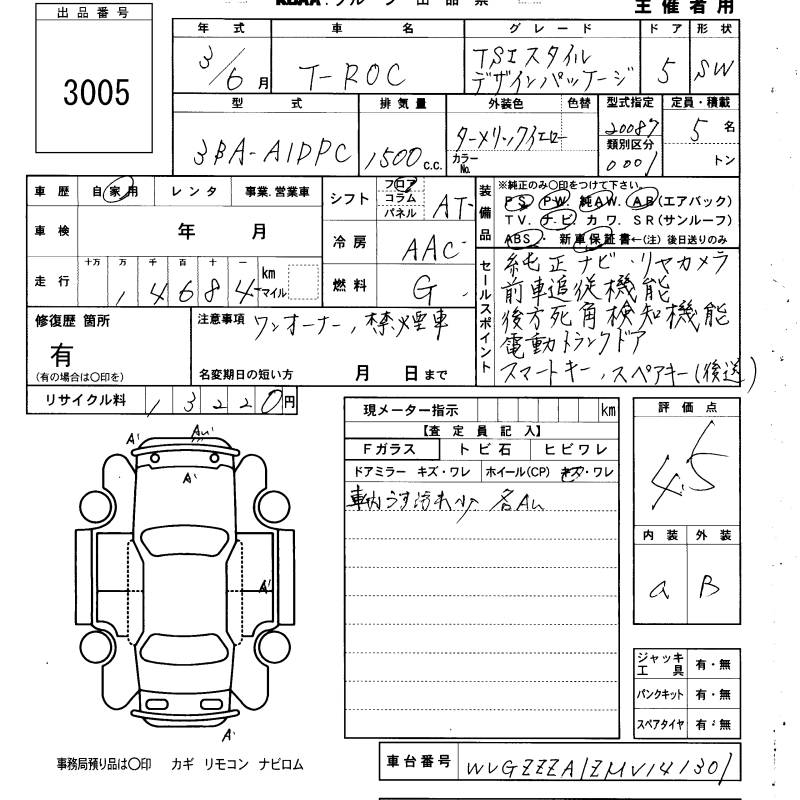 主催者用
出品番号
3005
年式 車名 グレード ドア 形状
3/6月 T-ROC TSIスタイル 5 SW
デザインパッケージ
型式 排気量 外装色 色替 型式指定 定員・積載
3BA-A1DPC 1500c.c. ターメリックイエロー 20087 5名
カラーNo. 類別区分
0001 トン
車歴 自家用 レンタ 事業.営業車
車検 年 月
走行 十万 万 千 百 十 一 km
1 4 6 8 4 マイル
シフト フロア コラム パネル AT
冷房 AAC
燃料 G
装備品 ※純正のみ○印をつけて下さい。
PS PW. 純AW. AB(エアバック)
TV. ナビ カワ. SR(サンルーフ)
ABS・ 新車保証書←(注)後日送りのみ
セールスポイント
純正ナビ・リヤカメラ
前車追従機能
後方死角検知機能
電動トランクドア
スマートキー,スペアキー(後送)
修復歴 箇所
有
(有の場合は○印を)
注意事項 ワンオーナー,禁煙車
名変期日の短い方 月 日まで
リサイクル料 1 3 2 2 0円
現メーター指示 km
【査定員記入】
Fガラス トビ石 ヒビワレ
ドアミラー キズ・ワレ ホイール(CP) キズ・ワレ
車内うす汚れ小 各AU
評価点
4.5
内装 外装
a B
A' AU
A'
A'
A'
ジャッキ工具 有・無
パンクキット 有・無
スペアタイヤ 有・無
事務局預り品は○印 カギ リモコン ナビロム
車台番号 WVGZZZA1ZMV141301